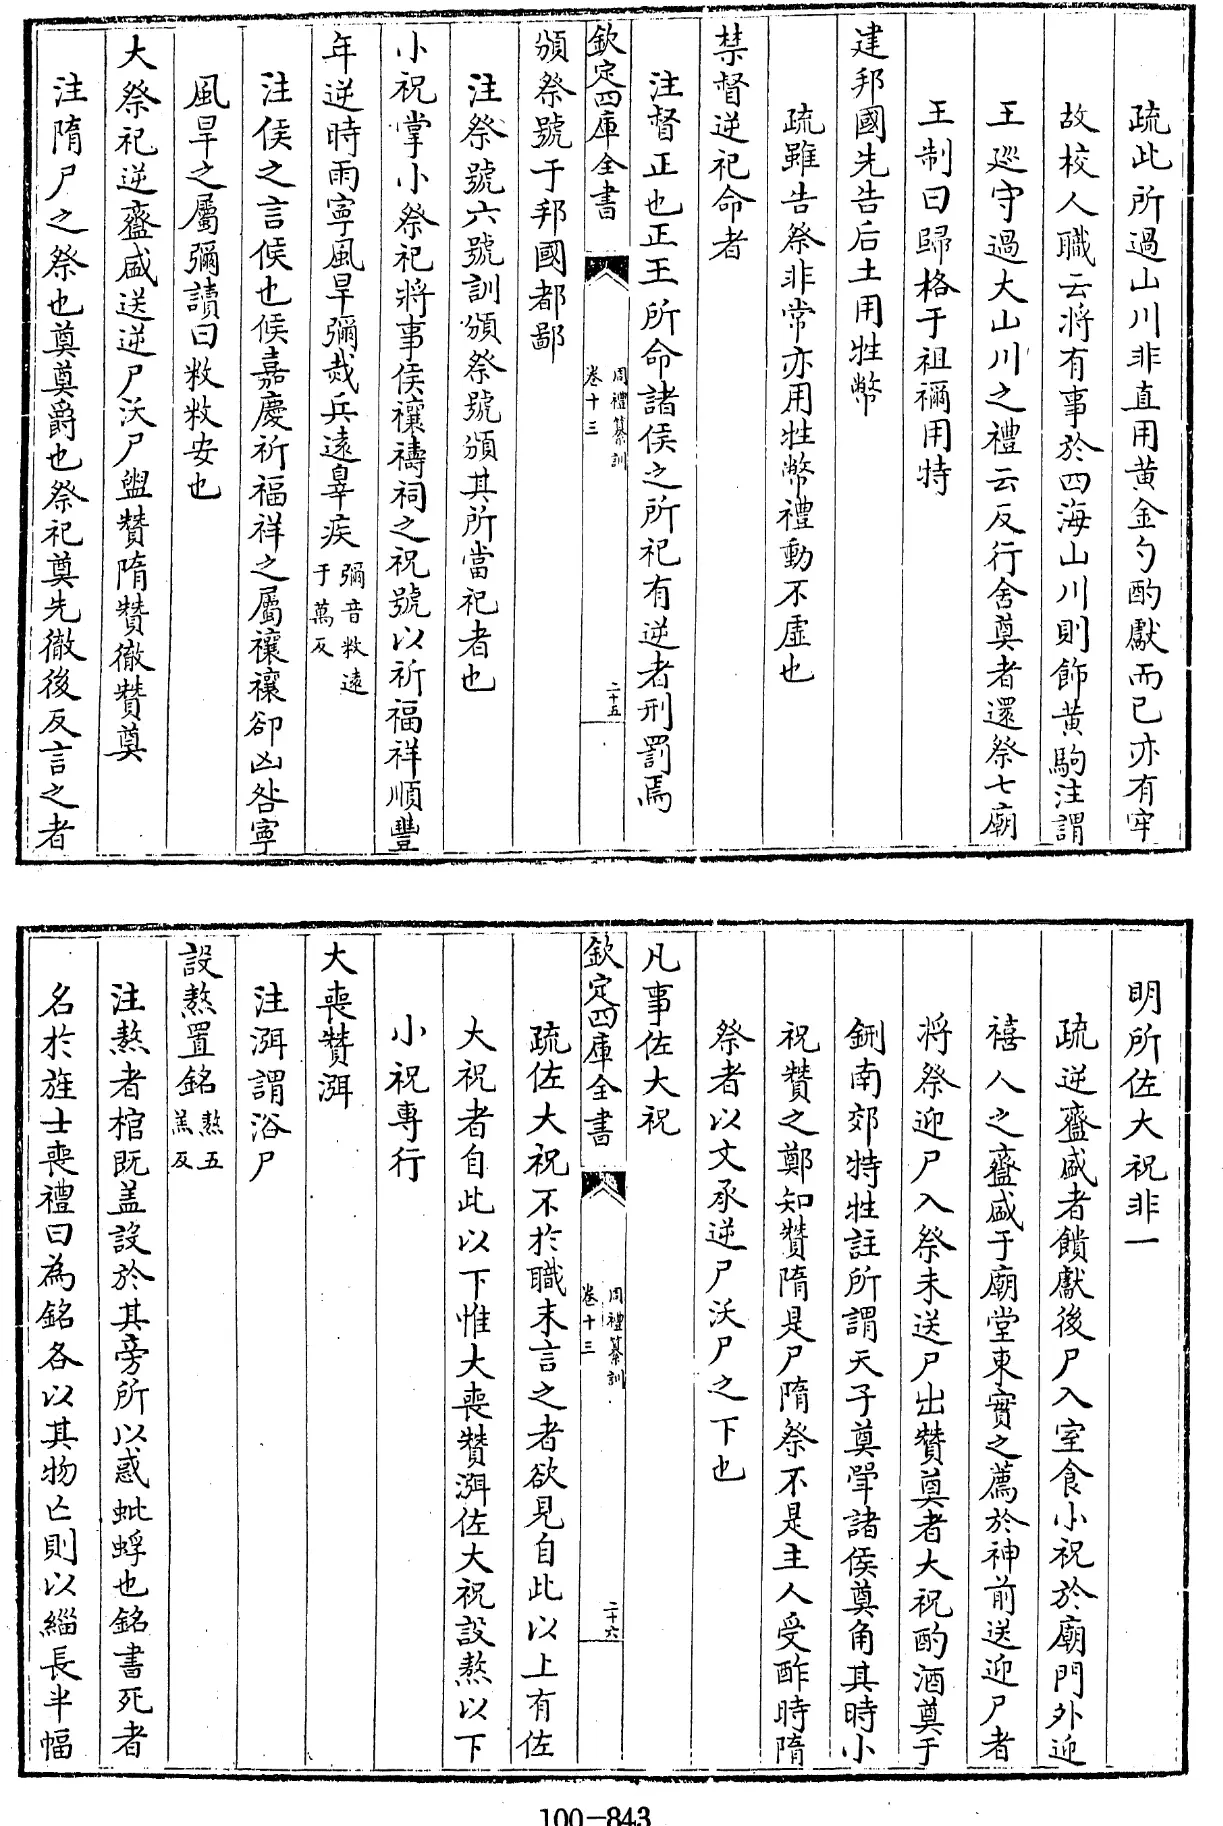 疏此所過山川非直用黄金勺酌獻而已亦有牢
故校人職云將有事於四海山川則飾黄駒注謂
王巡守過大山川之禮云反行舍奠者還祭七廟
王制曰歸格于祖禰用特
建邦國先告后土用牲幣
疏雖告祭非常亦用牲幣禮動不虚也
禁督逆祀命者
注督正也正王所命諸侯之所祀有逆者刑罰焉
欽定四庫全書
周禮纂訓
卷十三
二十五
頒祭號于邦國都鄙
注祭號六號訓頒祭號頒其所當祀者也
小祝掌小祭祀將事侯禳禱祠之祝號以祈福祥順豐
年逆時雨寧風旱彌烖兵遠辠疾彌音敉遠于萬反
注侯之言候也候嘉慶祈福祥之屬禳禳卻凶咎寧
風旱之屬彌讀曰敉敉安也
大祭祀逆齍盛送逆尸沃尸盥贊隋贊徹贊奠
注隋尸之祭也奠奠爵也祭祀奠先徹後反言之者
明所佐大祝非一
疏逆齍盛者饋獻後尸入室食小祝於廟門外迎
禧人之齍盛于廟堂東實之薦於神前送迎尸者
將祭迎尸入祭末送尸出贊奠者大祝酌酒奠于
鉶南郊特牲註所謂天子奠斝諸侯奠角其時小
祝贊之鄭知贊隋是尸隋祭不是主人受酢時隋
祭者以文承逆尸沃尸之下也
凡事佐大祝
欽定四庫全書
周禮纂訓
卷十三
二十六
疏佐大祝不於職末言之者欲見自此以上有佐
大祝者自此以下惟大喪贊渳佐大祝設熬以下
小祝專行
大喪贊渳
注渳謂浴尸
設熬置銘熬五羔反
注熬者棺既盖設於其旁所以惑蚍蜉也銘書死者
名於旌士喪禮曰為銘各以其物亡則以緇長半幅
100-843